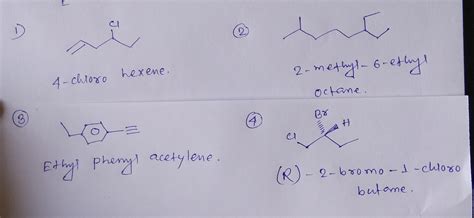 1)
Cl
4-chloro hexene.
2
2-methyl-6-ethyl
octane.
3
Ethyl phenyl acetylene.
4
Br
H
Cl
(R)-2-bromo-1-chloro
butane.